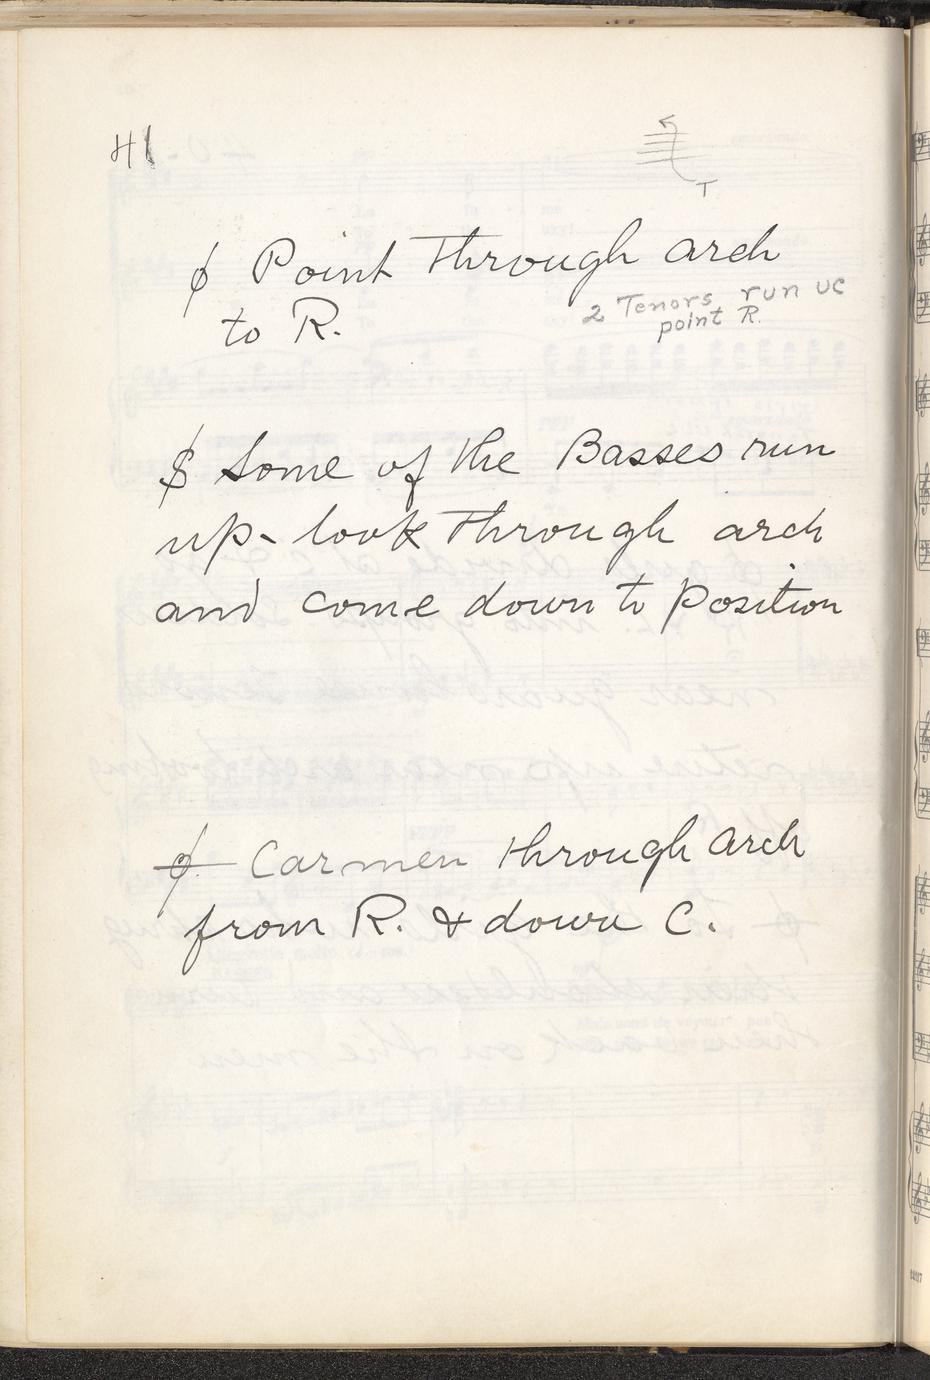 41
T
ϕ Point through arch
to R.
2 Tenors run UC
point R.
$ Some of the Basses run
up - look through arch
and come down to position
ϕ Carmen through arch
from R. & down C.